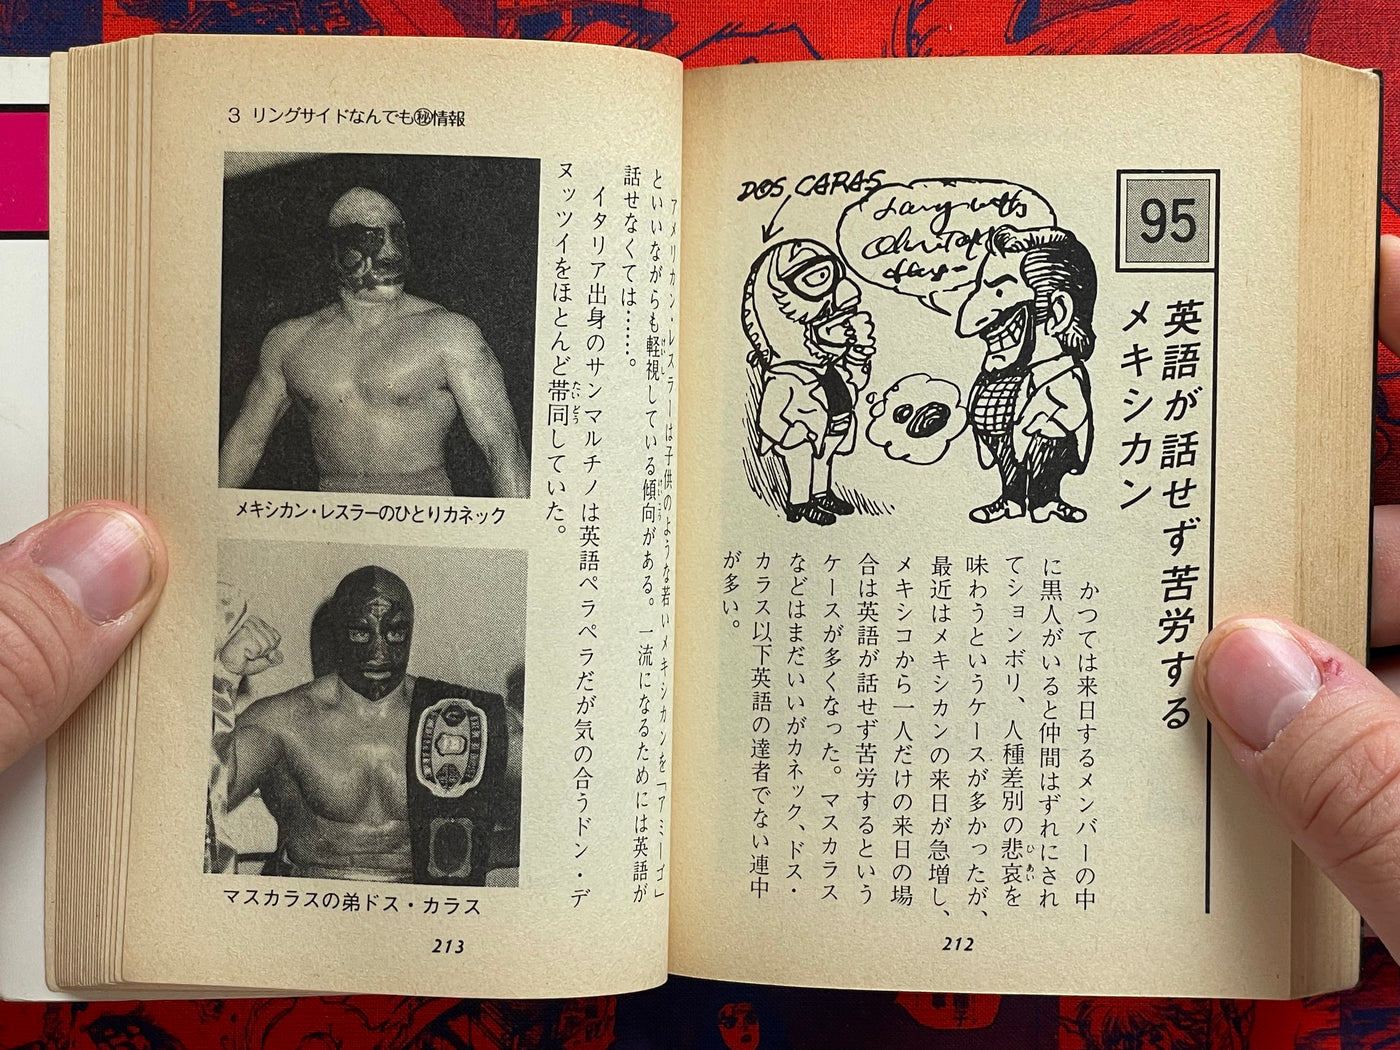 95
英語が話せず苦労する
メキシカン
DOS CARAS
かつては来日するメンバーの中
に黒人がいると仲間はずれにされ
てションボリ、人種差別の悲哀を
味わうというケースが多かったが、
最近はメキシカンの来日が急増し、
メキシコから一人だけの来日の場
合は英語が話せず苦労するという
ケースが多くなった。マスカラス
などはまだいいがカネック、ドス・
カラス以下英語の達者でない連中
が多い。
212
3 リングサイドなんでも㊙情報
アメリカン・レスラーは子供のような若いメキシカンを「アミーゴ」
といいながらも軽視している傾向がある。一流になるためには英語が
話せなくては……。
イタリア出身のサンマルチノは英語ペラペラだが気の合うドン・デ
ヌッツイをほとんど帯同していた。
メキシカン・レスラーのひとりカネック
マスカラスの弟ドス・カラス
213